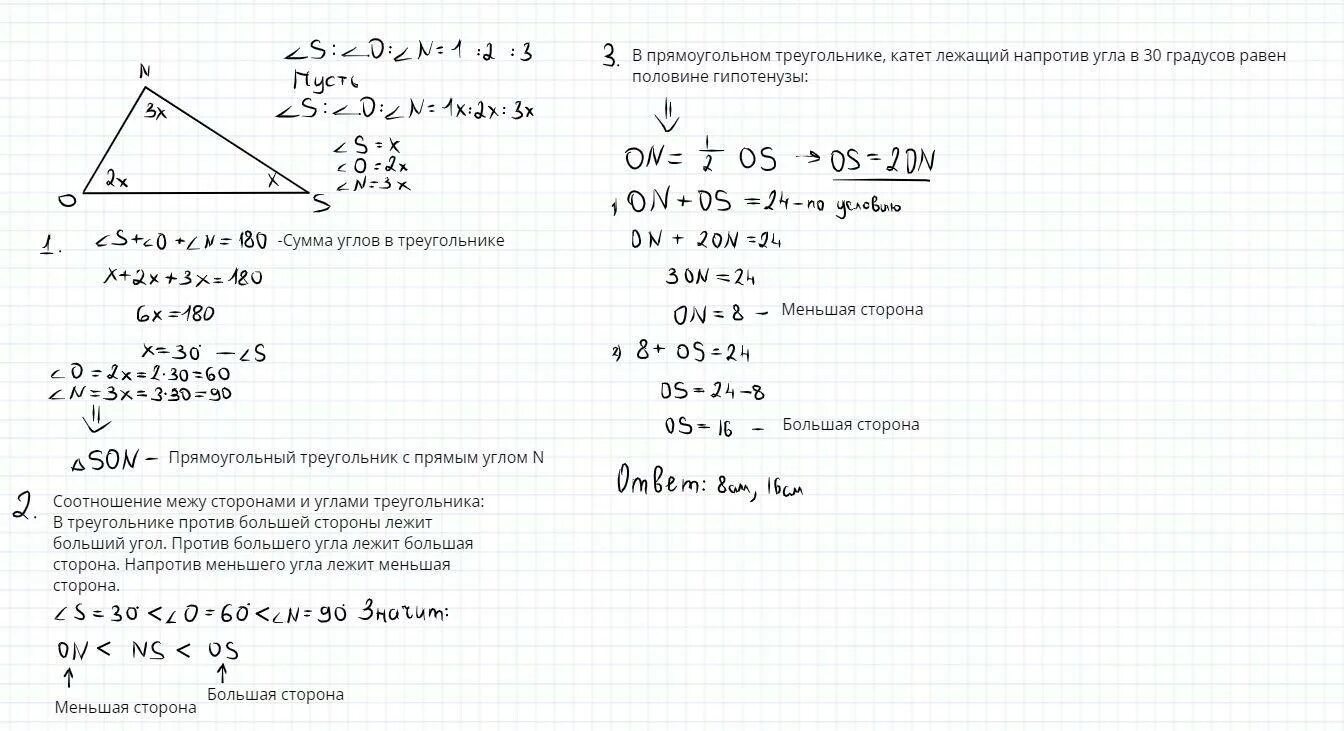 ∠S:∠O:∠N=1 :2 :3
Пусть
∠S:∠O:∠N=1x:2x:3x
∠S=x
∠O=2x
∠N=3x
N
3x
2x
x
O
S
1. ∠S+∠O+∠N=180 -Сумма углов в треугольнике
x+2x+3x=180
6x=180
x=30° -∠S
∠O=2x=2·30=60
∠N=3x=3·30=90
⇓
△SON - Прямоугольный треугольник с прямым углом N
2. Соотношение межу сторонами и углами треугольника:
В треугольнике против большей стороны лежит
больший угол. Против большего угла лежит большая
сторона. Напротив меньшего угла лежит меньшая
сторона.
∠S=30°<∠O=60°<∠N=90° Значит:
ON < NS < OS
↑ ↑
Большая сторона
Меньшая сторона
3. В прямоугольном треугольнике, катет лежащий напротив угла в 30 градусов равен
половине гипотенузы:
⇓
ON= 1/2 OS → OS=2ON
1) ON+OS=24-по условию
ON + 2ON=24
3ON=24
ON=8 - Меньшая сторона
2) 8+ OS=24
OS=24-8
OS=16 - Большая сторона
Ответ: 8см, 16см